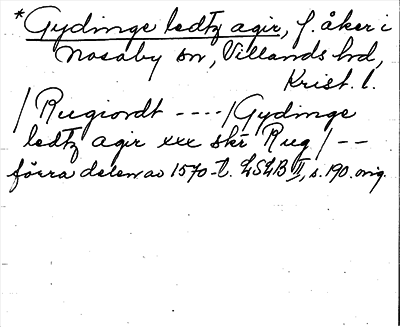 *Gydinge ledtz agir, f. åker i
Nosaby sn, Villands hd,
Krist. l.
/Rugiordt ----/Gydinge
ledtz agir xxx skr Rug/--
förra delen av 1570-t. LSLB II, s. 190. orig.